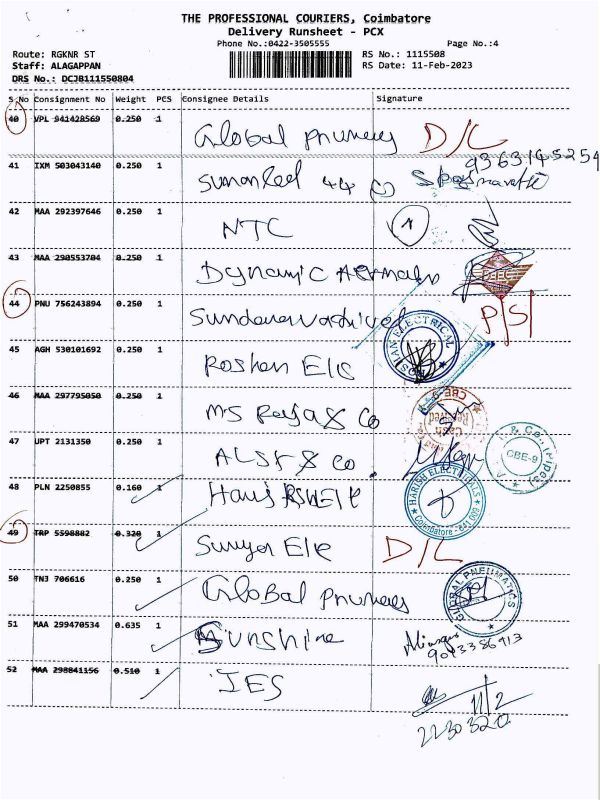 THE PROFESSIONAL COURIERS, Coimbatore
Delivery Runsheet - PCX
Phone No.:0422-3505555 Page No.:4
Route: RGKNR ST RS No.: 1115508
Staff: ALAGAPPAN RS Date: 11-Feb-2023
DRS No.: DCJB111550804
S.No Consignment No Weight PCS Consignee Details Signature
40 VPL 941428569 0.250 1
Global D/L
9363145254
41 IXM 503043140 0.250 1
44
42 MAA 292397646 0.250 1
NTC
43 MAA 290553704 0.250 1
Dynamic
44 PNU 756243894 0.250 1
P/S
45 AGH 530101692 0.250 1
Roshan Ele ROSHAN ELECTRICAL
46 MAA 297795050 0.250 1
MS Raja & Co CBE
47 UPT 2131350 0.250 1
& Co. CBE-9
48 PLN 2250855 0.160 1
HARISH ELECTRICALS
Coimbatore - 641 009
49 TRP 5598882 0.320 1
Surya Ele D/L
50 TNJ 706616 0.250 1
Global GLOBAL PNEUMATICS
51 MAA 299470534 0.635 1
Sunshine
9043386913
52 MAA 298841156 0.510 1
JES
11/2
2230320